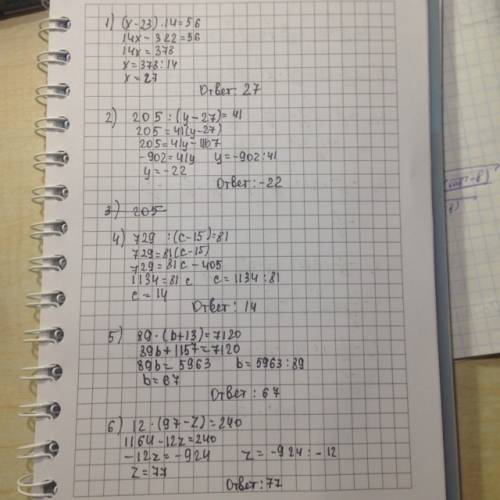 1) (x-23)·14=56
14x-322=56
14x=378
x=378:14
x=27
Ответ: 27
2) 205:(y-27)=41
205=41(y-27)
205=41y-1107
-902=41y y=-902:41
y=-22
Ответ:-22
3) 205
4) 729:(c-15)=81
729=81(c-15)
729=81c-405
1134=81c c=1134:81
c=14
Ответ: 14
5) 89·(b+13)=7120
89b+1157=7120
89b=5963 b=5963:89
b=67
Ответ: 67
6) 12·(97-z)=240
1164-12z=240
-12z=-924 z=-924:-12
z=77
Ответ:77